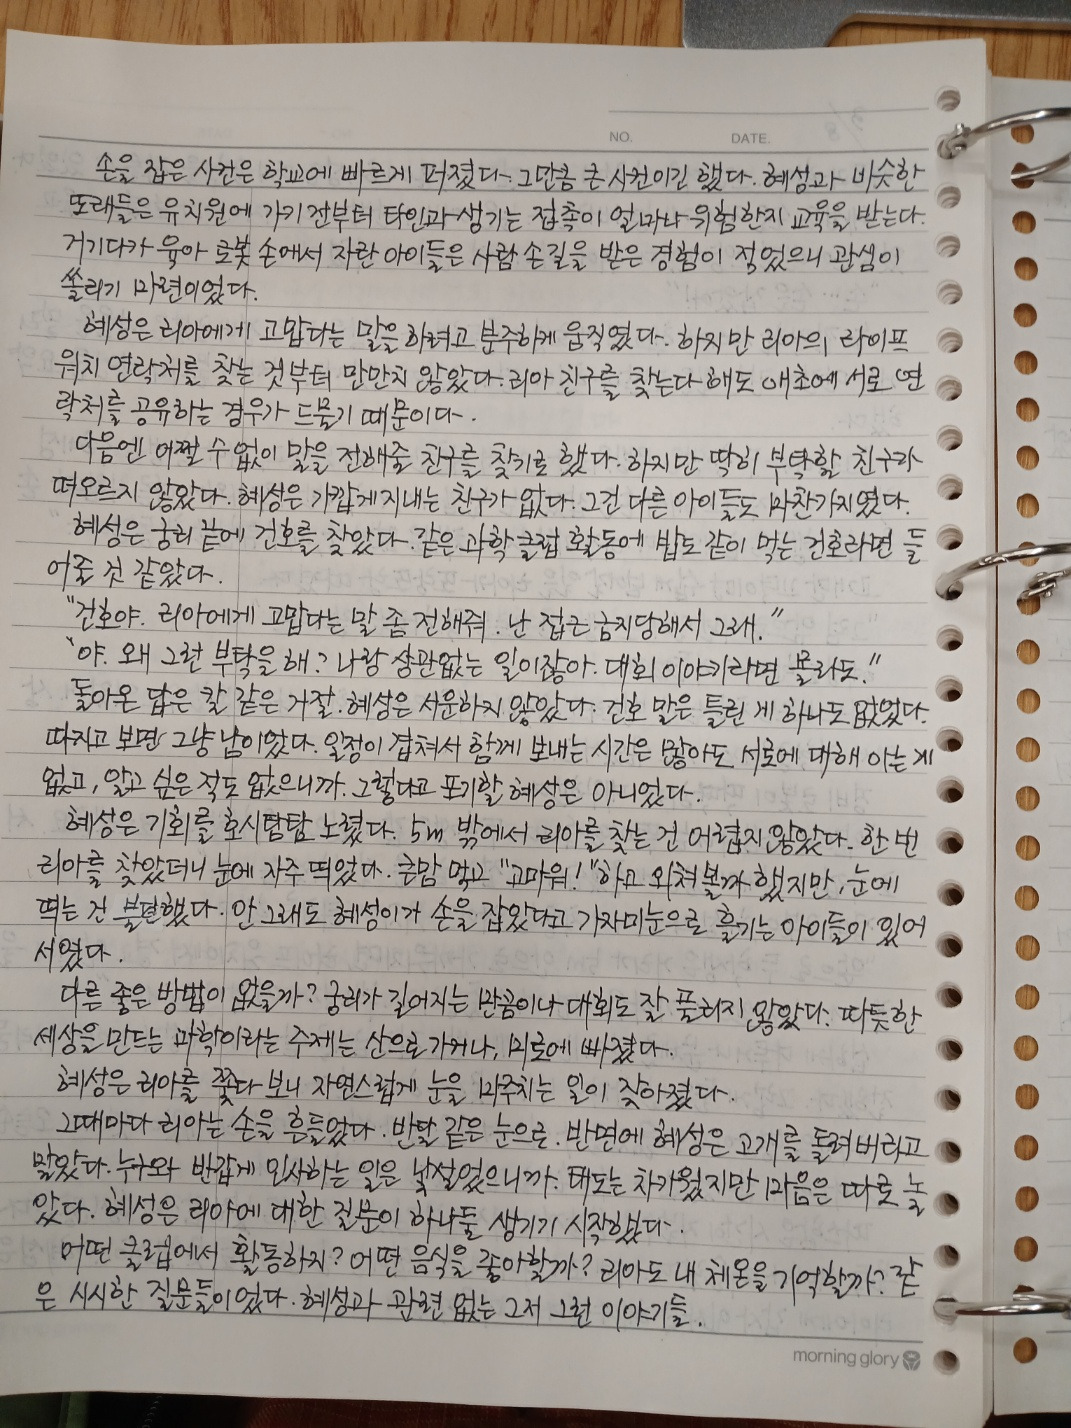 NO. DATE.
손을 잡은 사건은 학교에 빠르게 퍼졌다. 그만큼 큰 사건이긴 했다. 혜성과 비슷한
또래들은 유치원에 가기 전부터 타인과 생기는 접촉이 얼마나 위험한지 교육을 받는다.
거기다가 육아 로봇 손에서 자란 아이들은 사람 손길을 받은 경험이 적었으니 관심이
쏠리기 마련이었다.
혜성은 리아에게 고맙다는 말을 하려고 분주하게 움직였다. 하지만 리아의 라이프
워치 연락처를 찾는 것부터 만만치 않았다. 리아 친구를 찾는다 해도 애초에 서로 연
락처를 공유하는 경우가 드물기 때문이다.
다음엔 어쩔 수 없이 말을 전해줄 친구를 찾기로 했다. 하지만 딱히 부탁할 친구가
떠오르지 않았다. 혜성은 가깝게 지내는 친구가 없다. 그건 다른 아이들도 마찬가지였다.
혜성은 궁리 끝에 건호를 찾았다. 같은 과학 클럽 활동에 밥도 같이 먹는 건호라면 들
어줄 것 같았다.
"건호야. 리아에게 고맙다는 말 좀 전해줘. 난 접근 금지당해서 그래."
"야. 왜 그런 부탁을 해? 나랑 상관없는 일이잖아. 대회 이야기라면 몰라도."
돌아온 답은 칼 같은 거절. 혜성은 서운하지 않았다. 건호 말은 틀린 게 하나도 없었다.
따지고 보면 그냥 남이었다. 일정이 겹쳐서 함께 보내는 시간은 많아도 서로에 대해 아는 게
없고, 알고 싶은 적도 없으니까. 그렇다고 포기할 혜성은 아니었다.
혜성은 기회를 호시탐탐 노렸다. 5m 밖에서 리아를 찾는 건 어렵지 않았다. 한 번
리아를 찾았더니 눈에 자주 띄었다. 큰맘 먹고 "고마워!"하고 외쳐볼까 했지만, 눈에
띄는 건 불편했다. 안 그래도 혜성이가 손을 잡았다고 가자미눈으로 흘기는 아이들이 있어
서였다.
다른 좋은 방법이 없을까? 궁리가 길어지는 만큼이나 대회도 잘 풀리지 않았다. 따듯한
세상을 만드는 과학이라는 주제는 산으로 가거나, 미로에 빠졌다.
혜성은 리아를 쫓다 보니 자연스럽게 눈을 마주치는 일이 잦아졌다.
그때마다 리아는 손을 흔들었다. 반달 같은 눈으로. 반면에 혜성은 고개를 돌려버리고
말았다. 누구와 반갑게 인사하는 일은 낯설었으니까. 태도는 차가웠지만 마음은 따로 놀
았다. 혜성은 리아에 대한 질문이 하나둘 생기기 시작했다.
어떤 클럽에서 활동하지? 어떤 음식을 좋아할까? 리아도 내 체온을 기억할까? 같
은 시시한 질문들이었다. 혜성과 관련 없는 그저 그런 이야기들.
morning glory